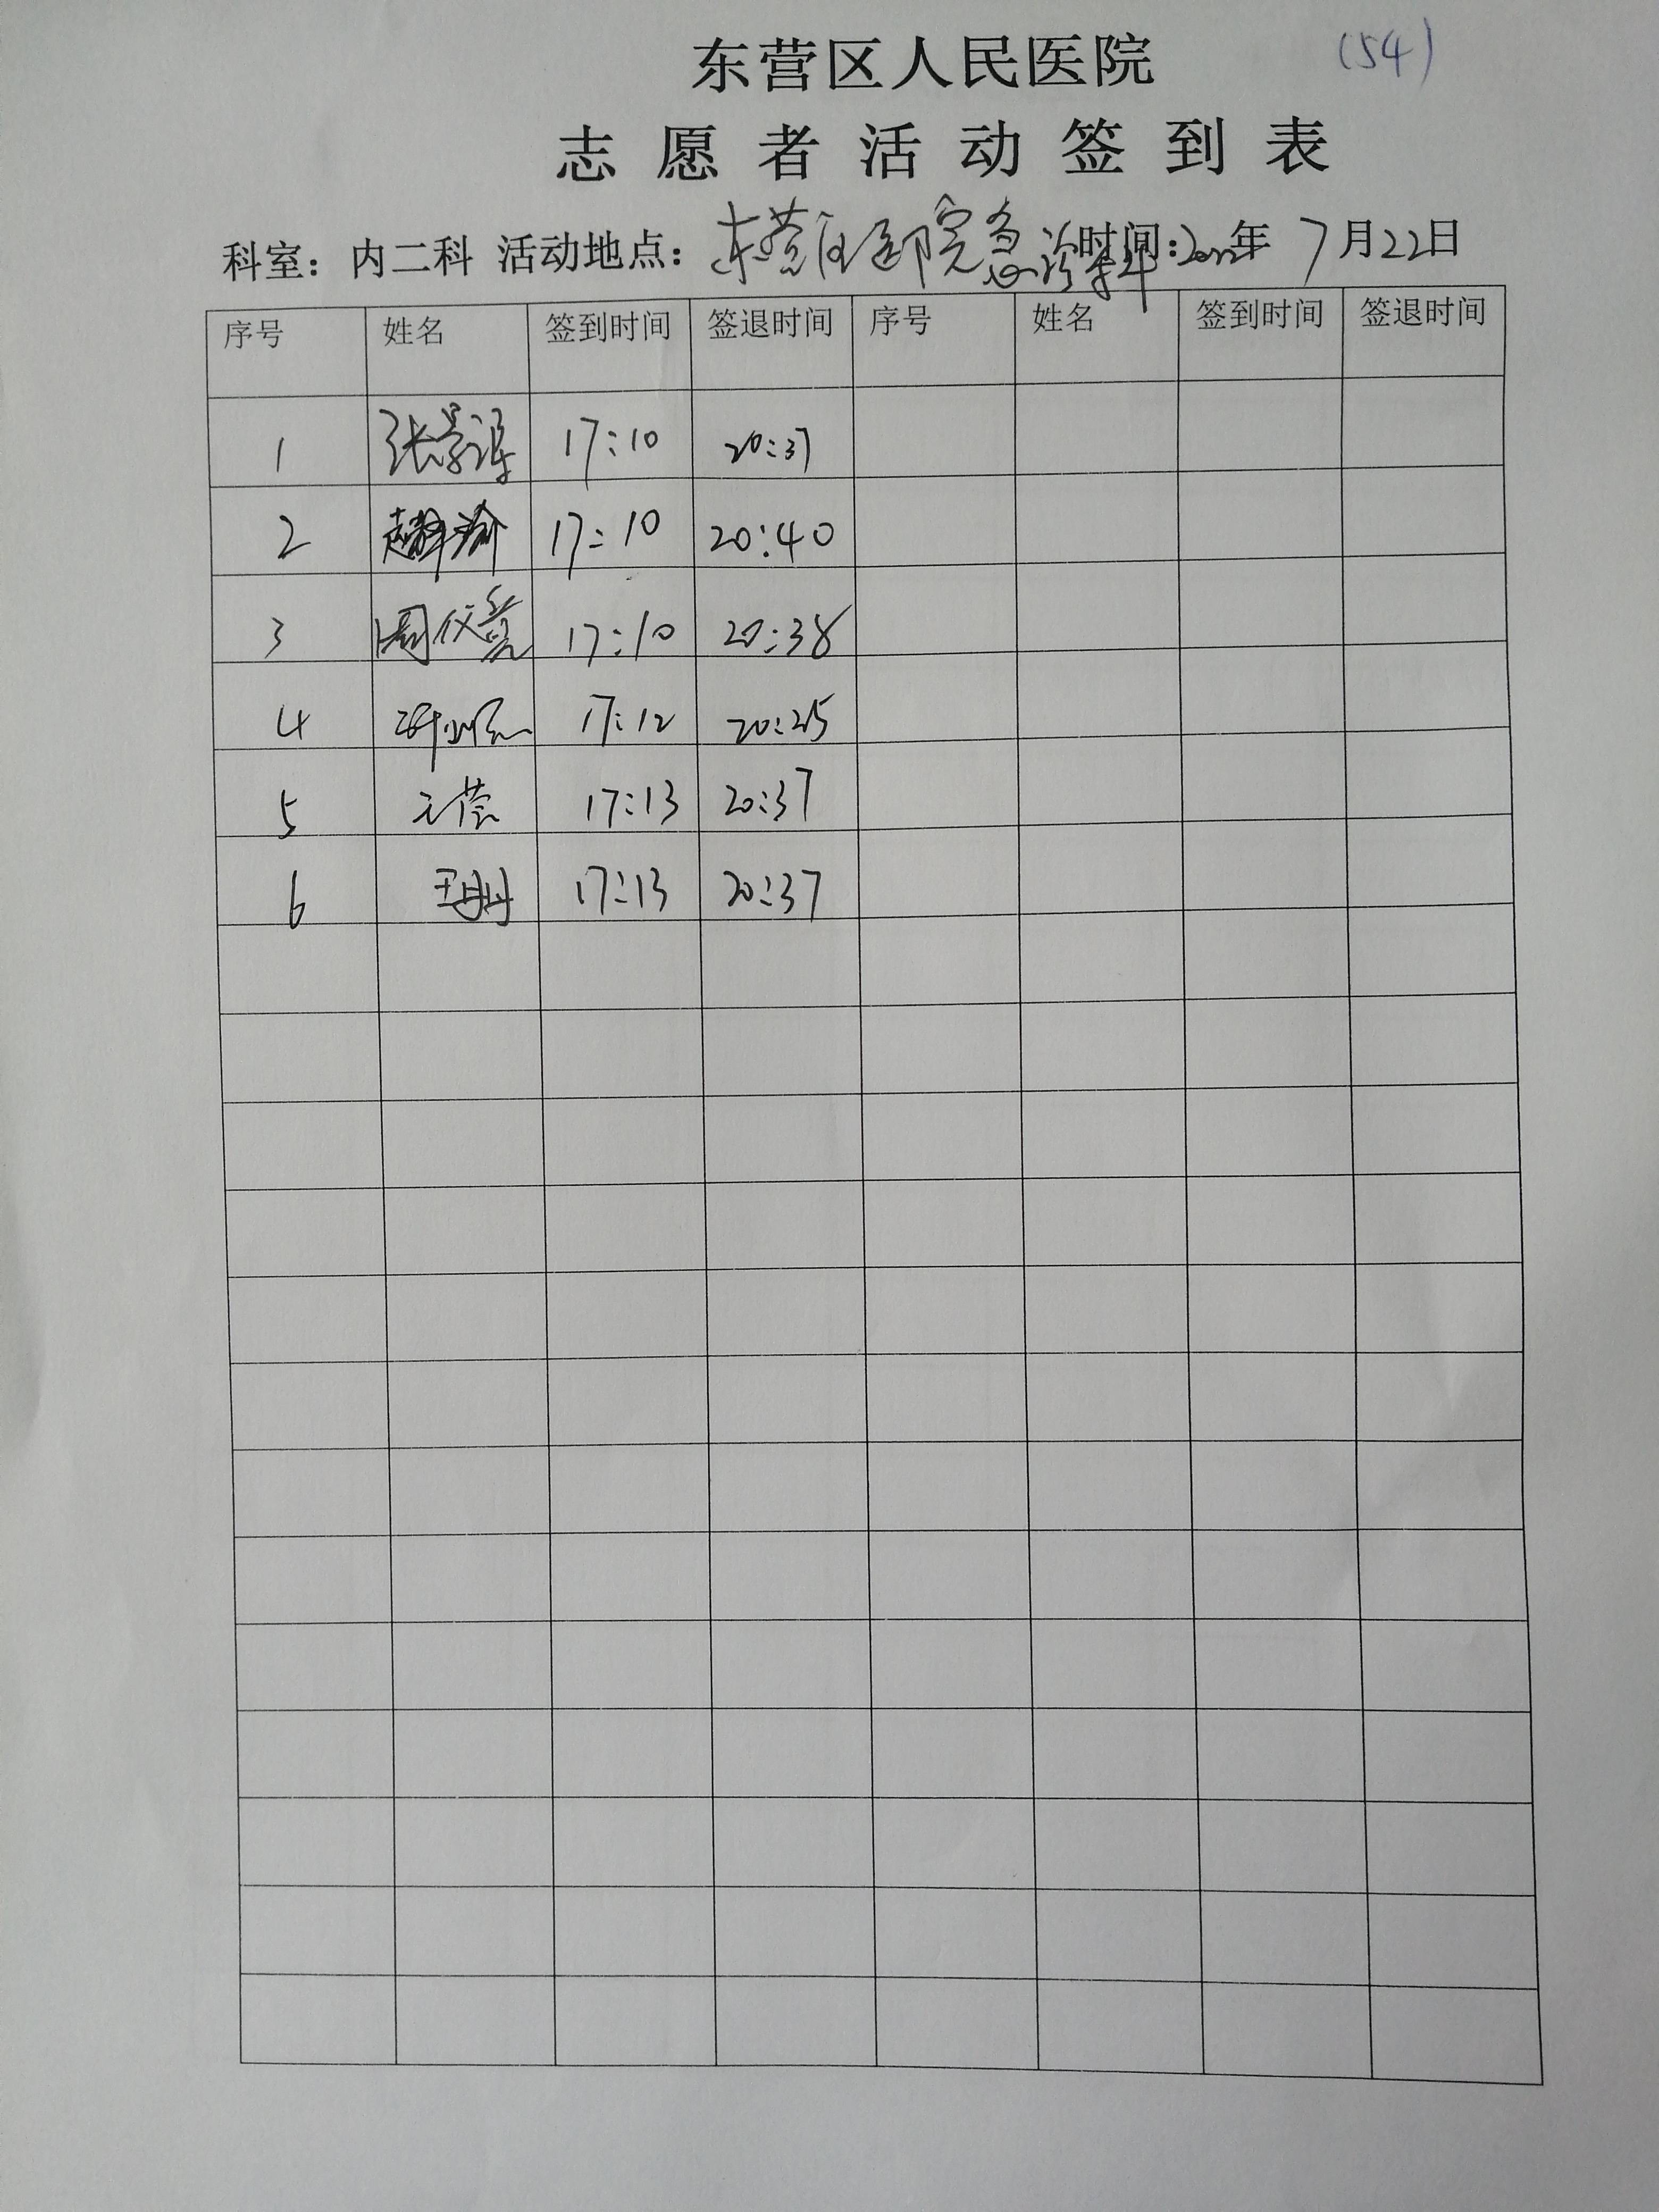 (54)
东营区人民医院
志愿者活动签到表
科室：内二科 活动地点：东营区人民医院急诊 时间：2022年 7月22日
序号 姓名 签到时间 签退时间 序号 姓名 签到时间 签退时间
1 张景 17:10 20:37
2 赵 17:10 20:40
3 周仪亮 17:10 20:38
4 17:12 20:25
5 17:13 20:37
6 王丹丹 17:13 20:37